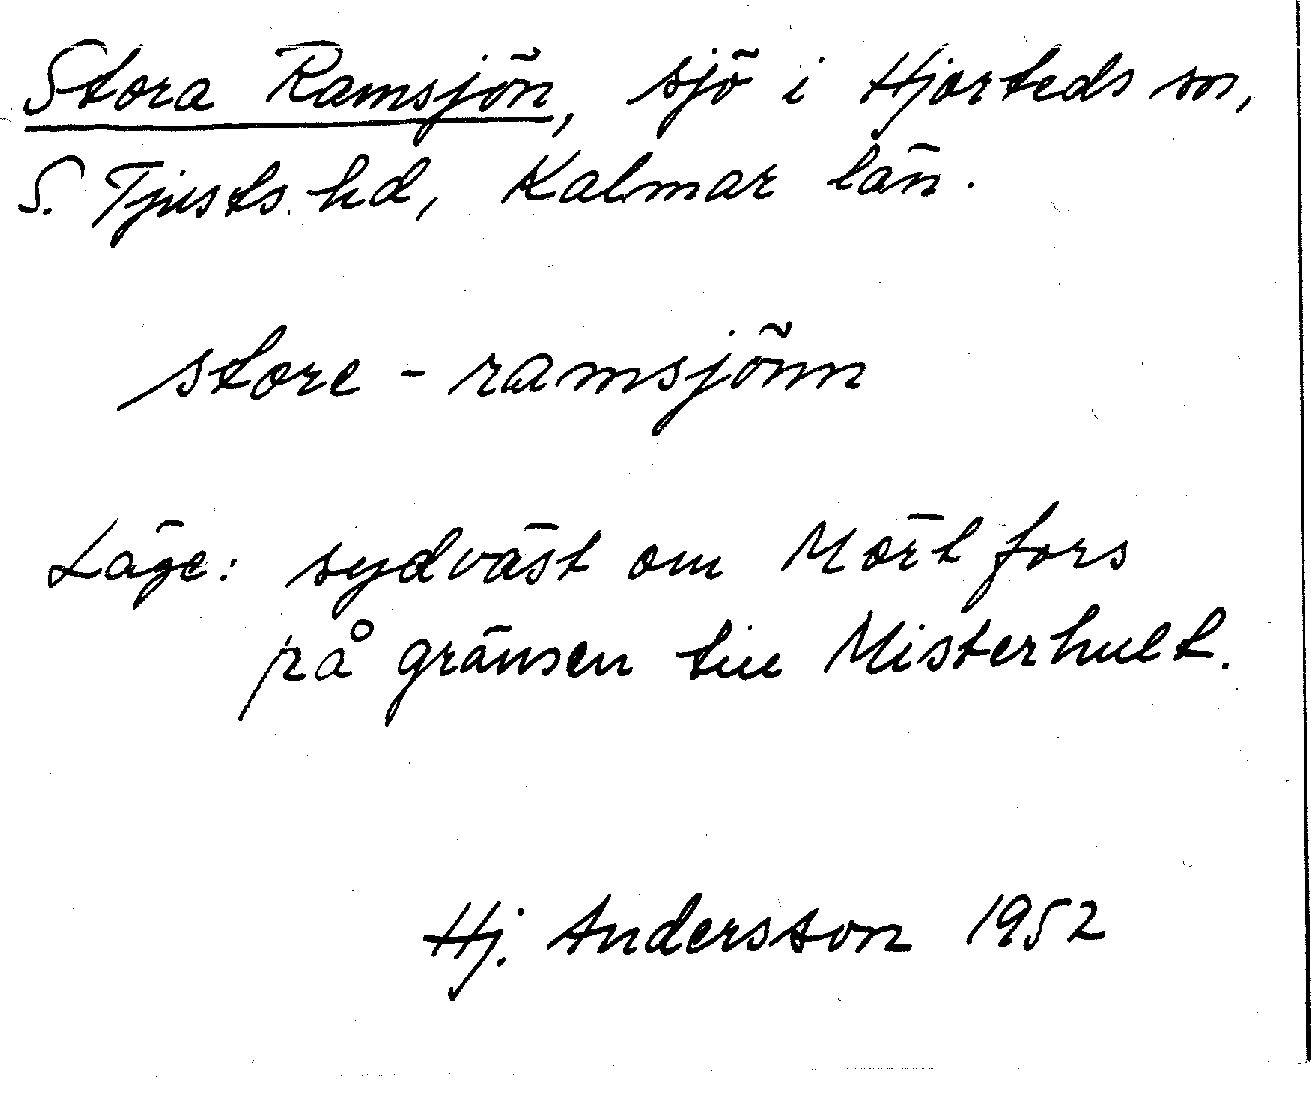 Stora Ramsjön, sjö i Hjorteds sn,
S. Tjusts hd, Kalmar län.
store - ramsjönn
Läge: sydväst om Mörtfors
på gränsen till Misterhult.
Hj. Andersson 1952